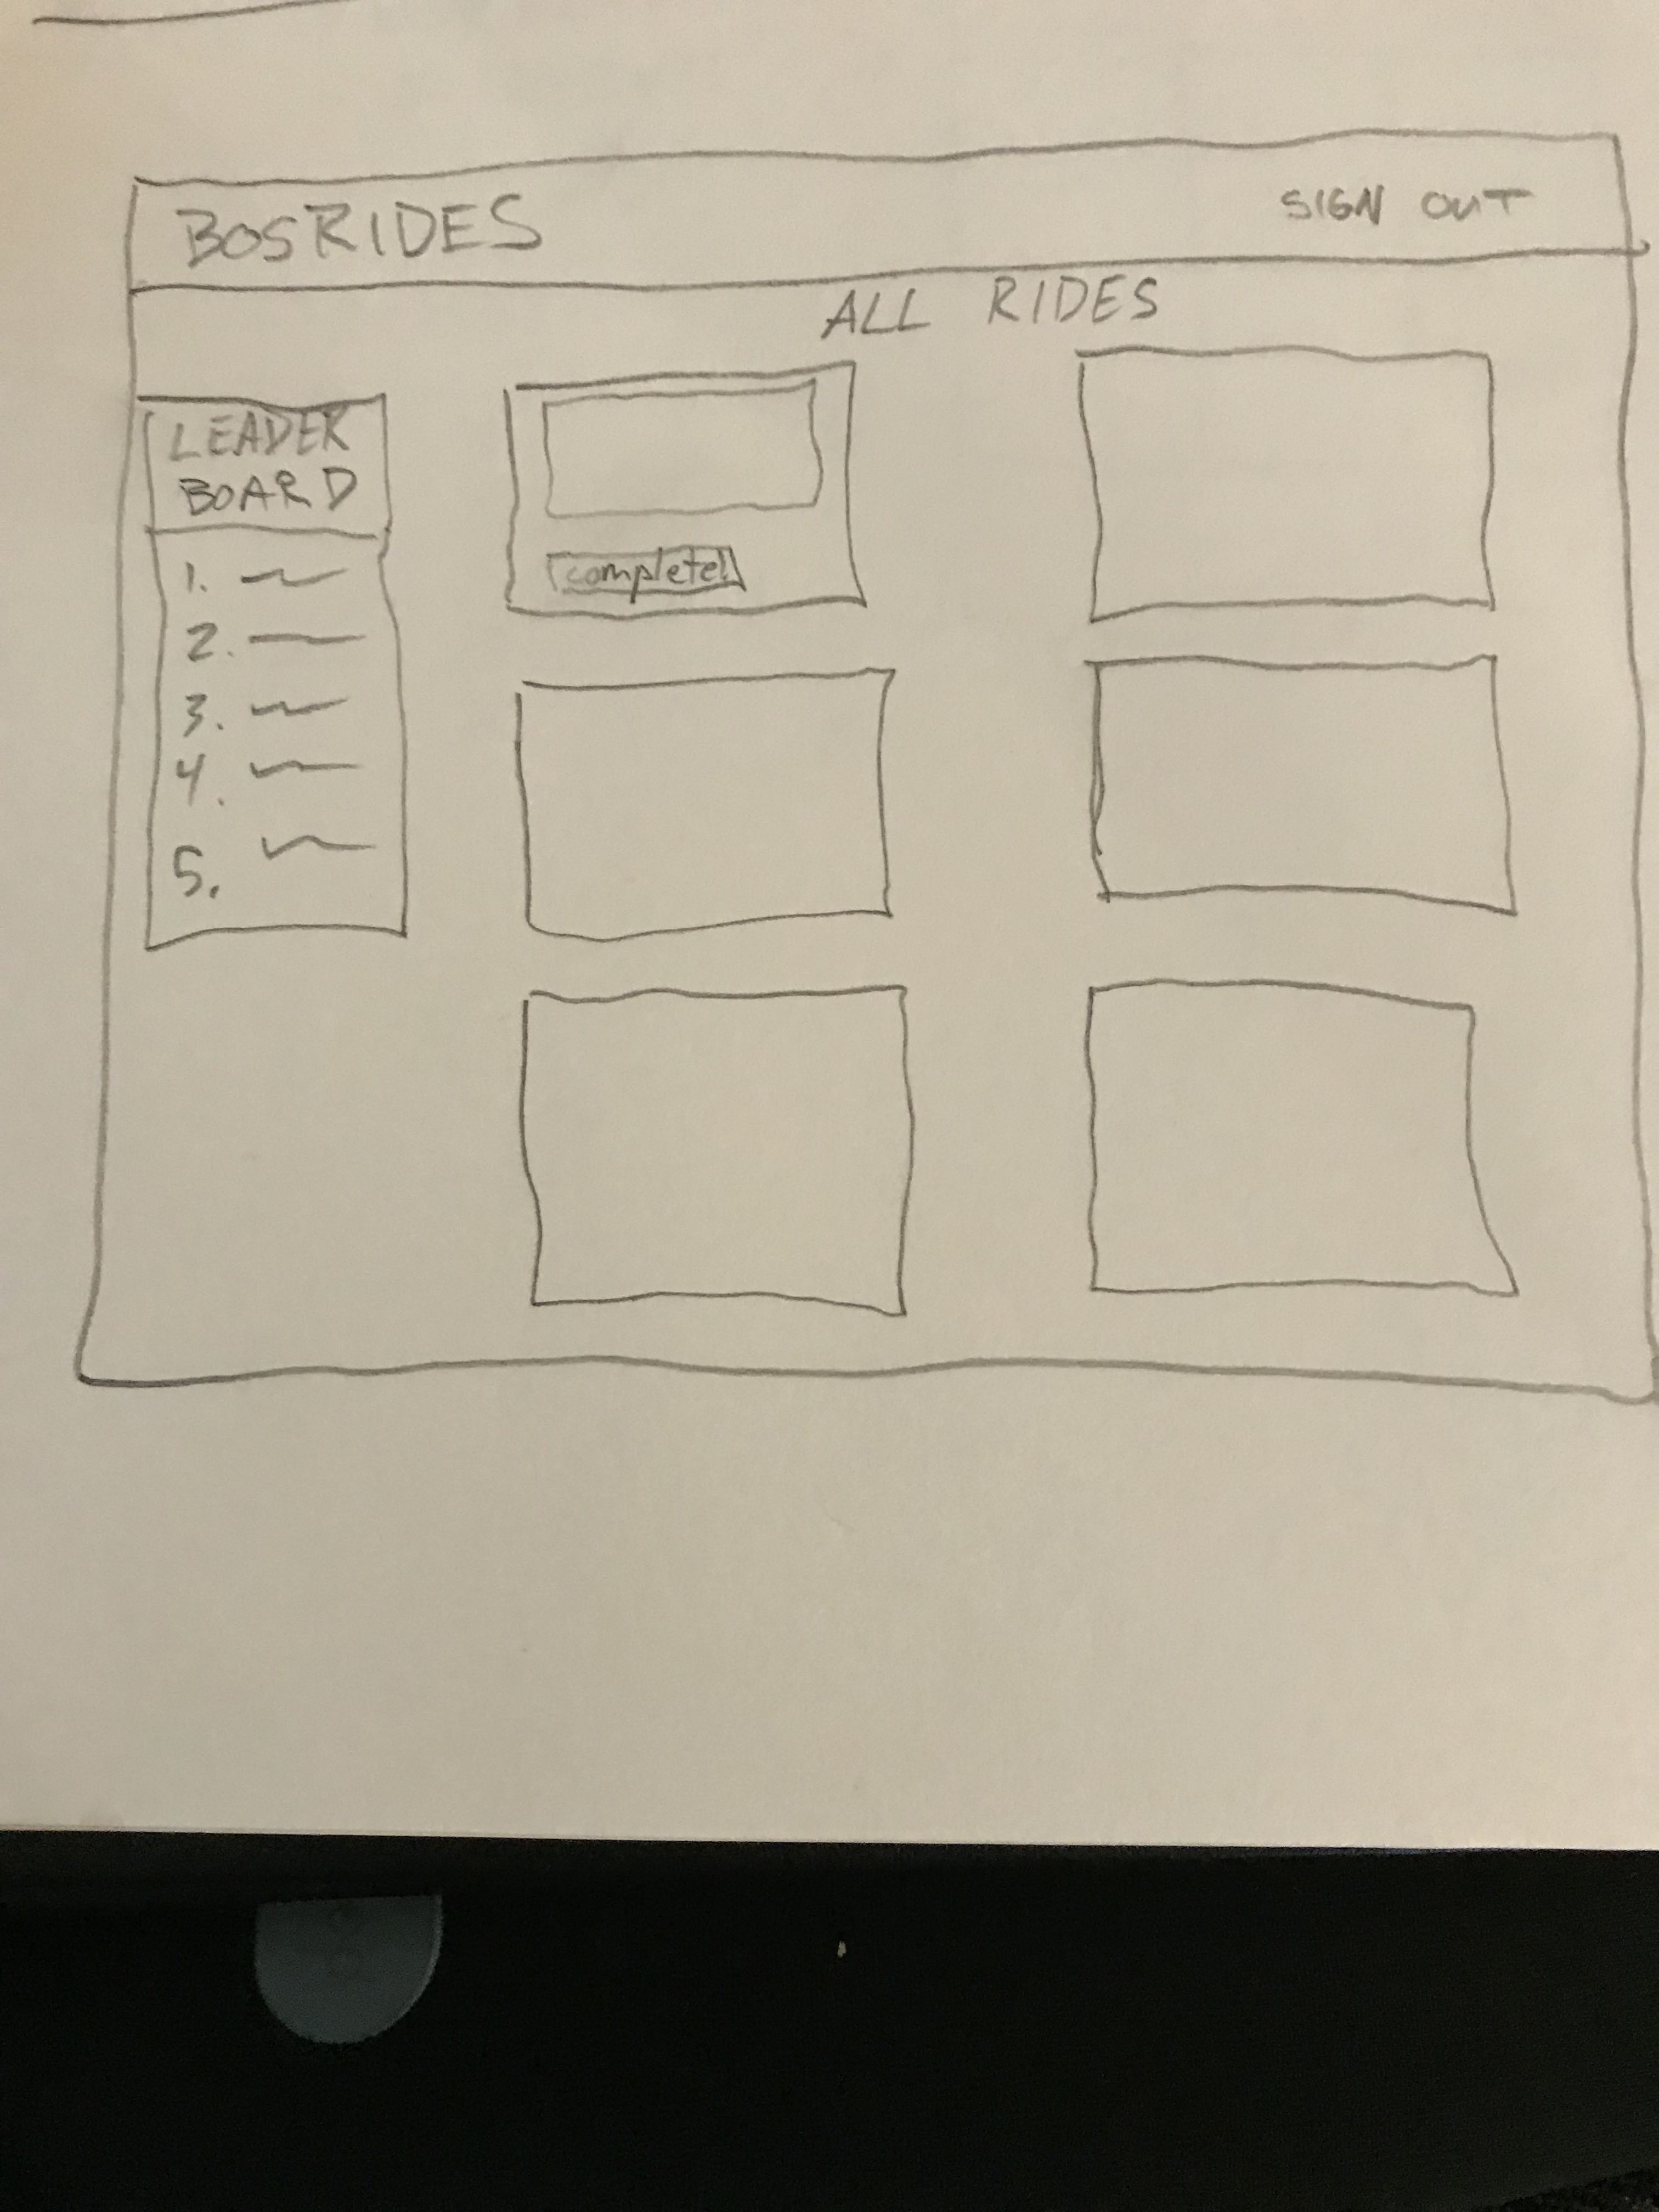 BOSRIDES
SIGN OUT
ALL RIDES
LEADER
BOARD
1.
2.
3.
4.
5.
complete!